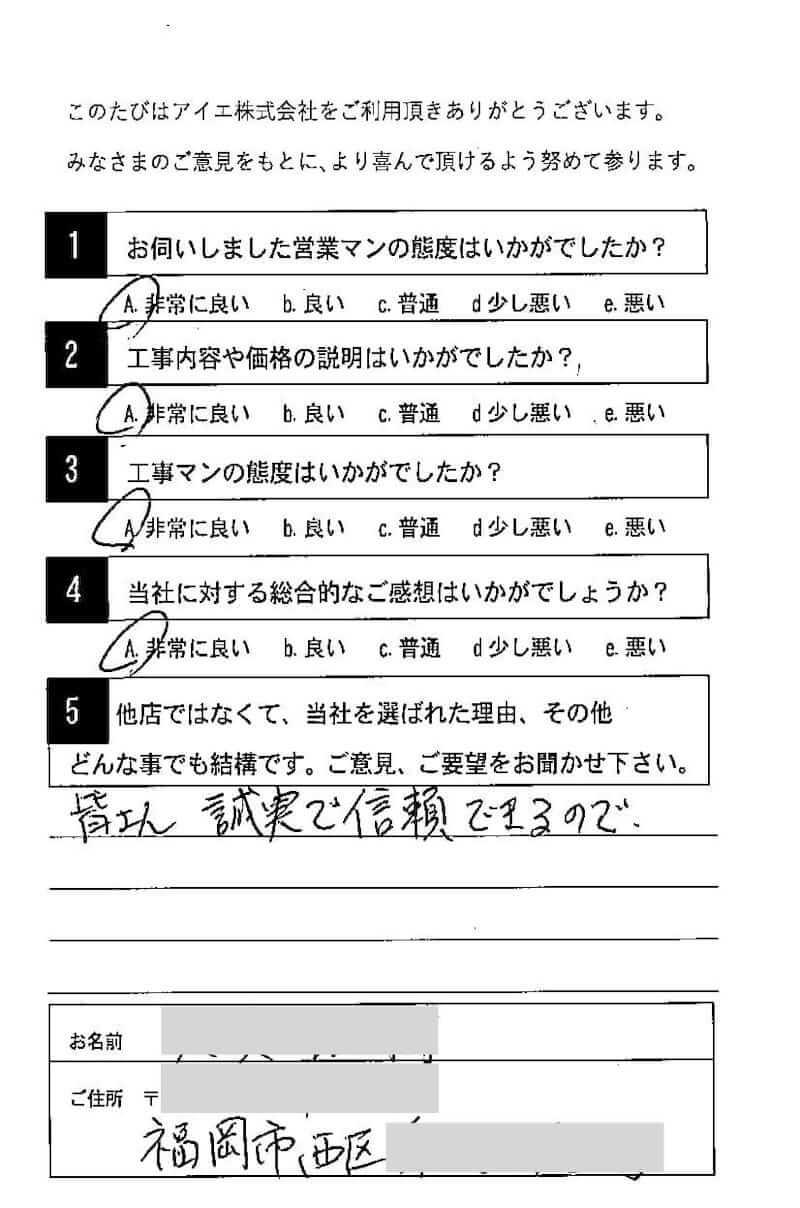 このたびはアイエ株式会社をご利用頂きありがとうございます。
みなさまのご意見をもとに、より喜んで頂けるよう努めて参ります。
1 お伺いしました営業マンの態度はいかがでしたか？
A. 非常に良い b. 良い c. 普通 d 少し悪い e. 悪い
2 工事内容や価格の説明はいかがでしたか？
A. 非常に良い b. 良い c. 普通 d 少し悪い e. 悪い
3 工事マンの態度はいかがでしたか？
A. 非常に良い b. 良い c. 普通 d 少し悪い e. 悪い
4 当社に対する総合的なご感想はいかがでしょうか？
A. 非常に良い b. 良い c. 普通 d 少し悪い e. 悪い
5 他店ではなくて、当社を選ばれた理由、その他
どんな事でも結構です。ご意見、ご要望をお聞かせ下さい。
皆さん 誠実で信頼できるので、
お名前
ご住所 〒
福岡市西区